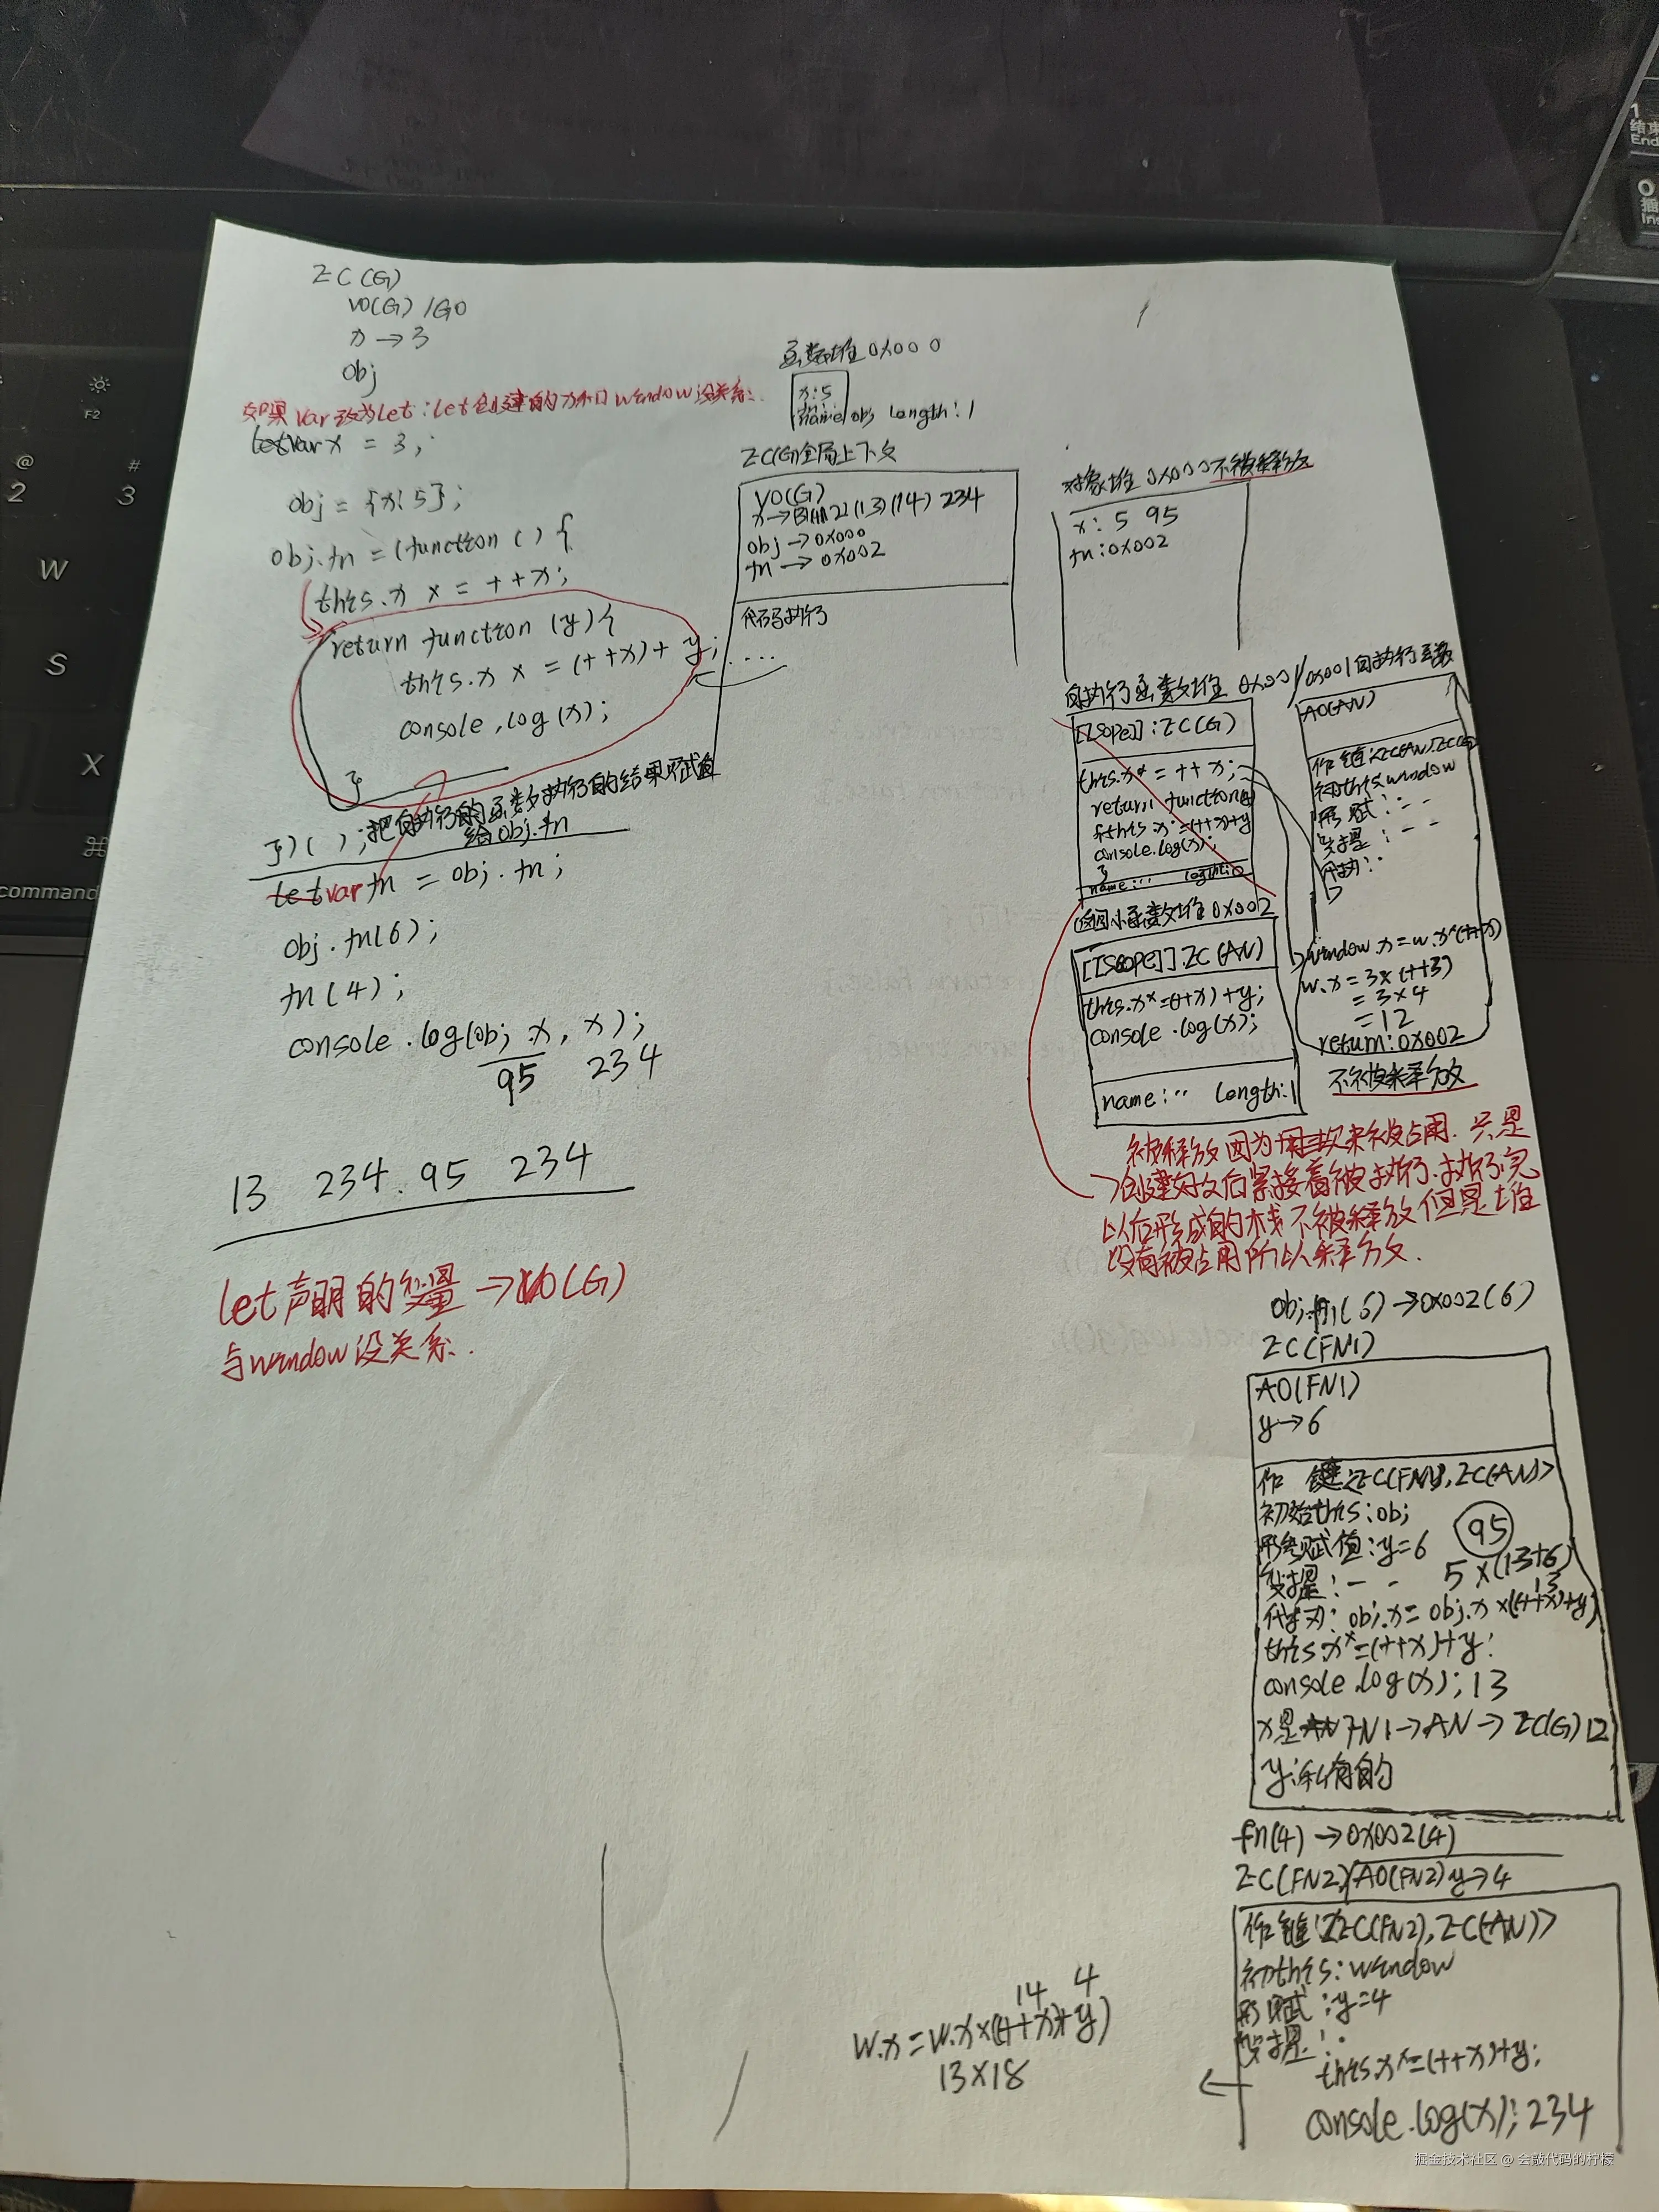 EC(G)
VO(G)/GO
x→3
obj
如果var改为let:let创建的x和window没关系
var x = 3;
obj = {x:5};
obj.fn = (function () {
this.x x = ++x;
return function (y){
this.x x = (++x)+y;
console.log(x);
}
})();把自执行的函数执行的结果赋值
给obj.fn
var fn = obj.fn;
obj.fn(6);
fn(4);
console.log(obj.x, x);
95 234
13 234. 95 234
let声明的变量→VO(G)
与window没关系.
函数堆0x000
x:5
name obj length:1
EC(G)全局上下文
VO(G)
(13)(14) 234
obj→0x000
fn→0x002
代码执行
对象堆0x000不被释放
x: 5 95
fn:0x002
自执行函数堆 0x001
[[Scope]]:EC(G)
this.x* = ++x;
return function(y)
{this.x*=(++x)+y
console.log(x);
}
name:.. length:0
返回小函数堆0x002
[[SCOPE]]:EC(AN)
this.x*=(++x)+y;
console.log(x);
name:.. length:1
0x001自执行函数
AO(AN)
作 链:<EC(AN),EC(G)>
初this:window
形 赋:--
变提:--
代执:
window.x=w.x*(++x)
w.x=3x(++3)
=3x4
=12
return:0x002
不被释放
被释放因为 未被占用.只是
创建好以后紧接着被执行.执行完
以后形成的栈不被释放但是堆
没有被占用所以释放.
obj.fn(6)→0x002(6)
EC(FN1)
AO(FN1)
y→6
作 链<EC(FN1),EC(AN)>
初始this:obj
形参赋值:y=6
95
变提:--
5x(13+6)
13
代执:obj.x=obj.x x((++x)+y)
this.x*=(++x)+y;
console.log(x);13
x是 FN1→AN→EC(G)12
y:私有的
fn(4)→0x002(4)
EC(FN2) AO(FN2) y→4
作 链<EC(FN2),EC(AN)>
初this:window
形 赋:y=4
变提:
this.x*=(++x)+y;
console.log(x);234
14 4
w.x=w.x x((++x)+y)
13x18
掘金技术社区 @ 会敲代码的柠檬
F2
@
2
#
3
W
S
X
command
1
结束
End
0
插
Ins